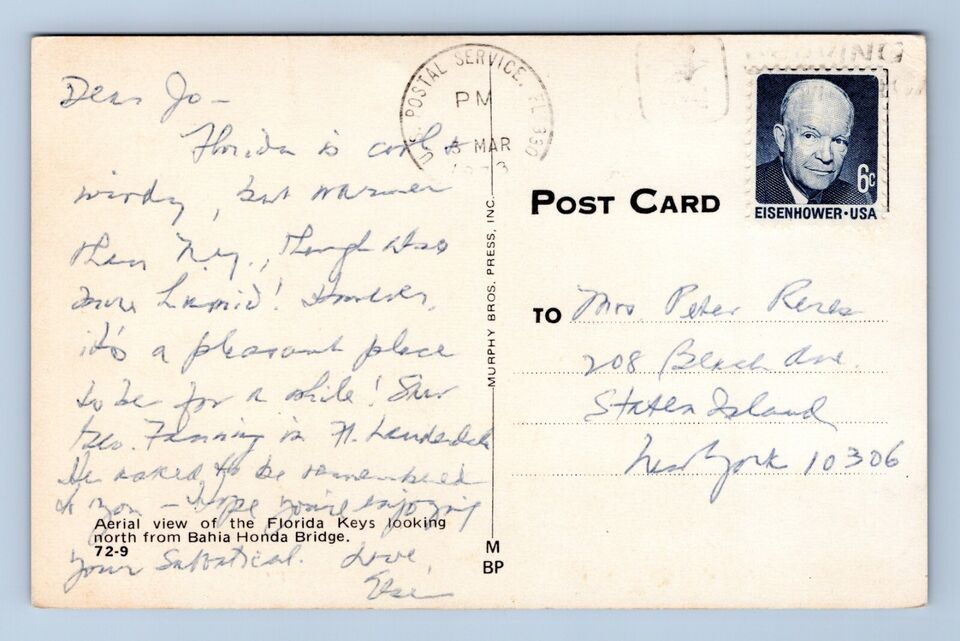 Dear Jo —
Florida is cool &
windy, but warmer
than N.Y., though also
more humid! However,
it's a pleasant place
to be for a while! Saw
Geo. Fanning in Ft. Lauderdale
He asked to be remembered
to you — hope you're enjoying
your Sabbatical. Love,
Aerial view of the Florida Keys looking
north from Bahia Honda Bridge.
72-9
MURPHY BROS. PRESS, INC.
M
BP
U.S. POSTAL SERVICE, FL 330
PM
MAR
6c
EISENHOWER·USA
POST CARD
TO Mrs Peter
208 Beach Ave.
Staten Island
New York 10306